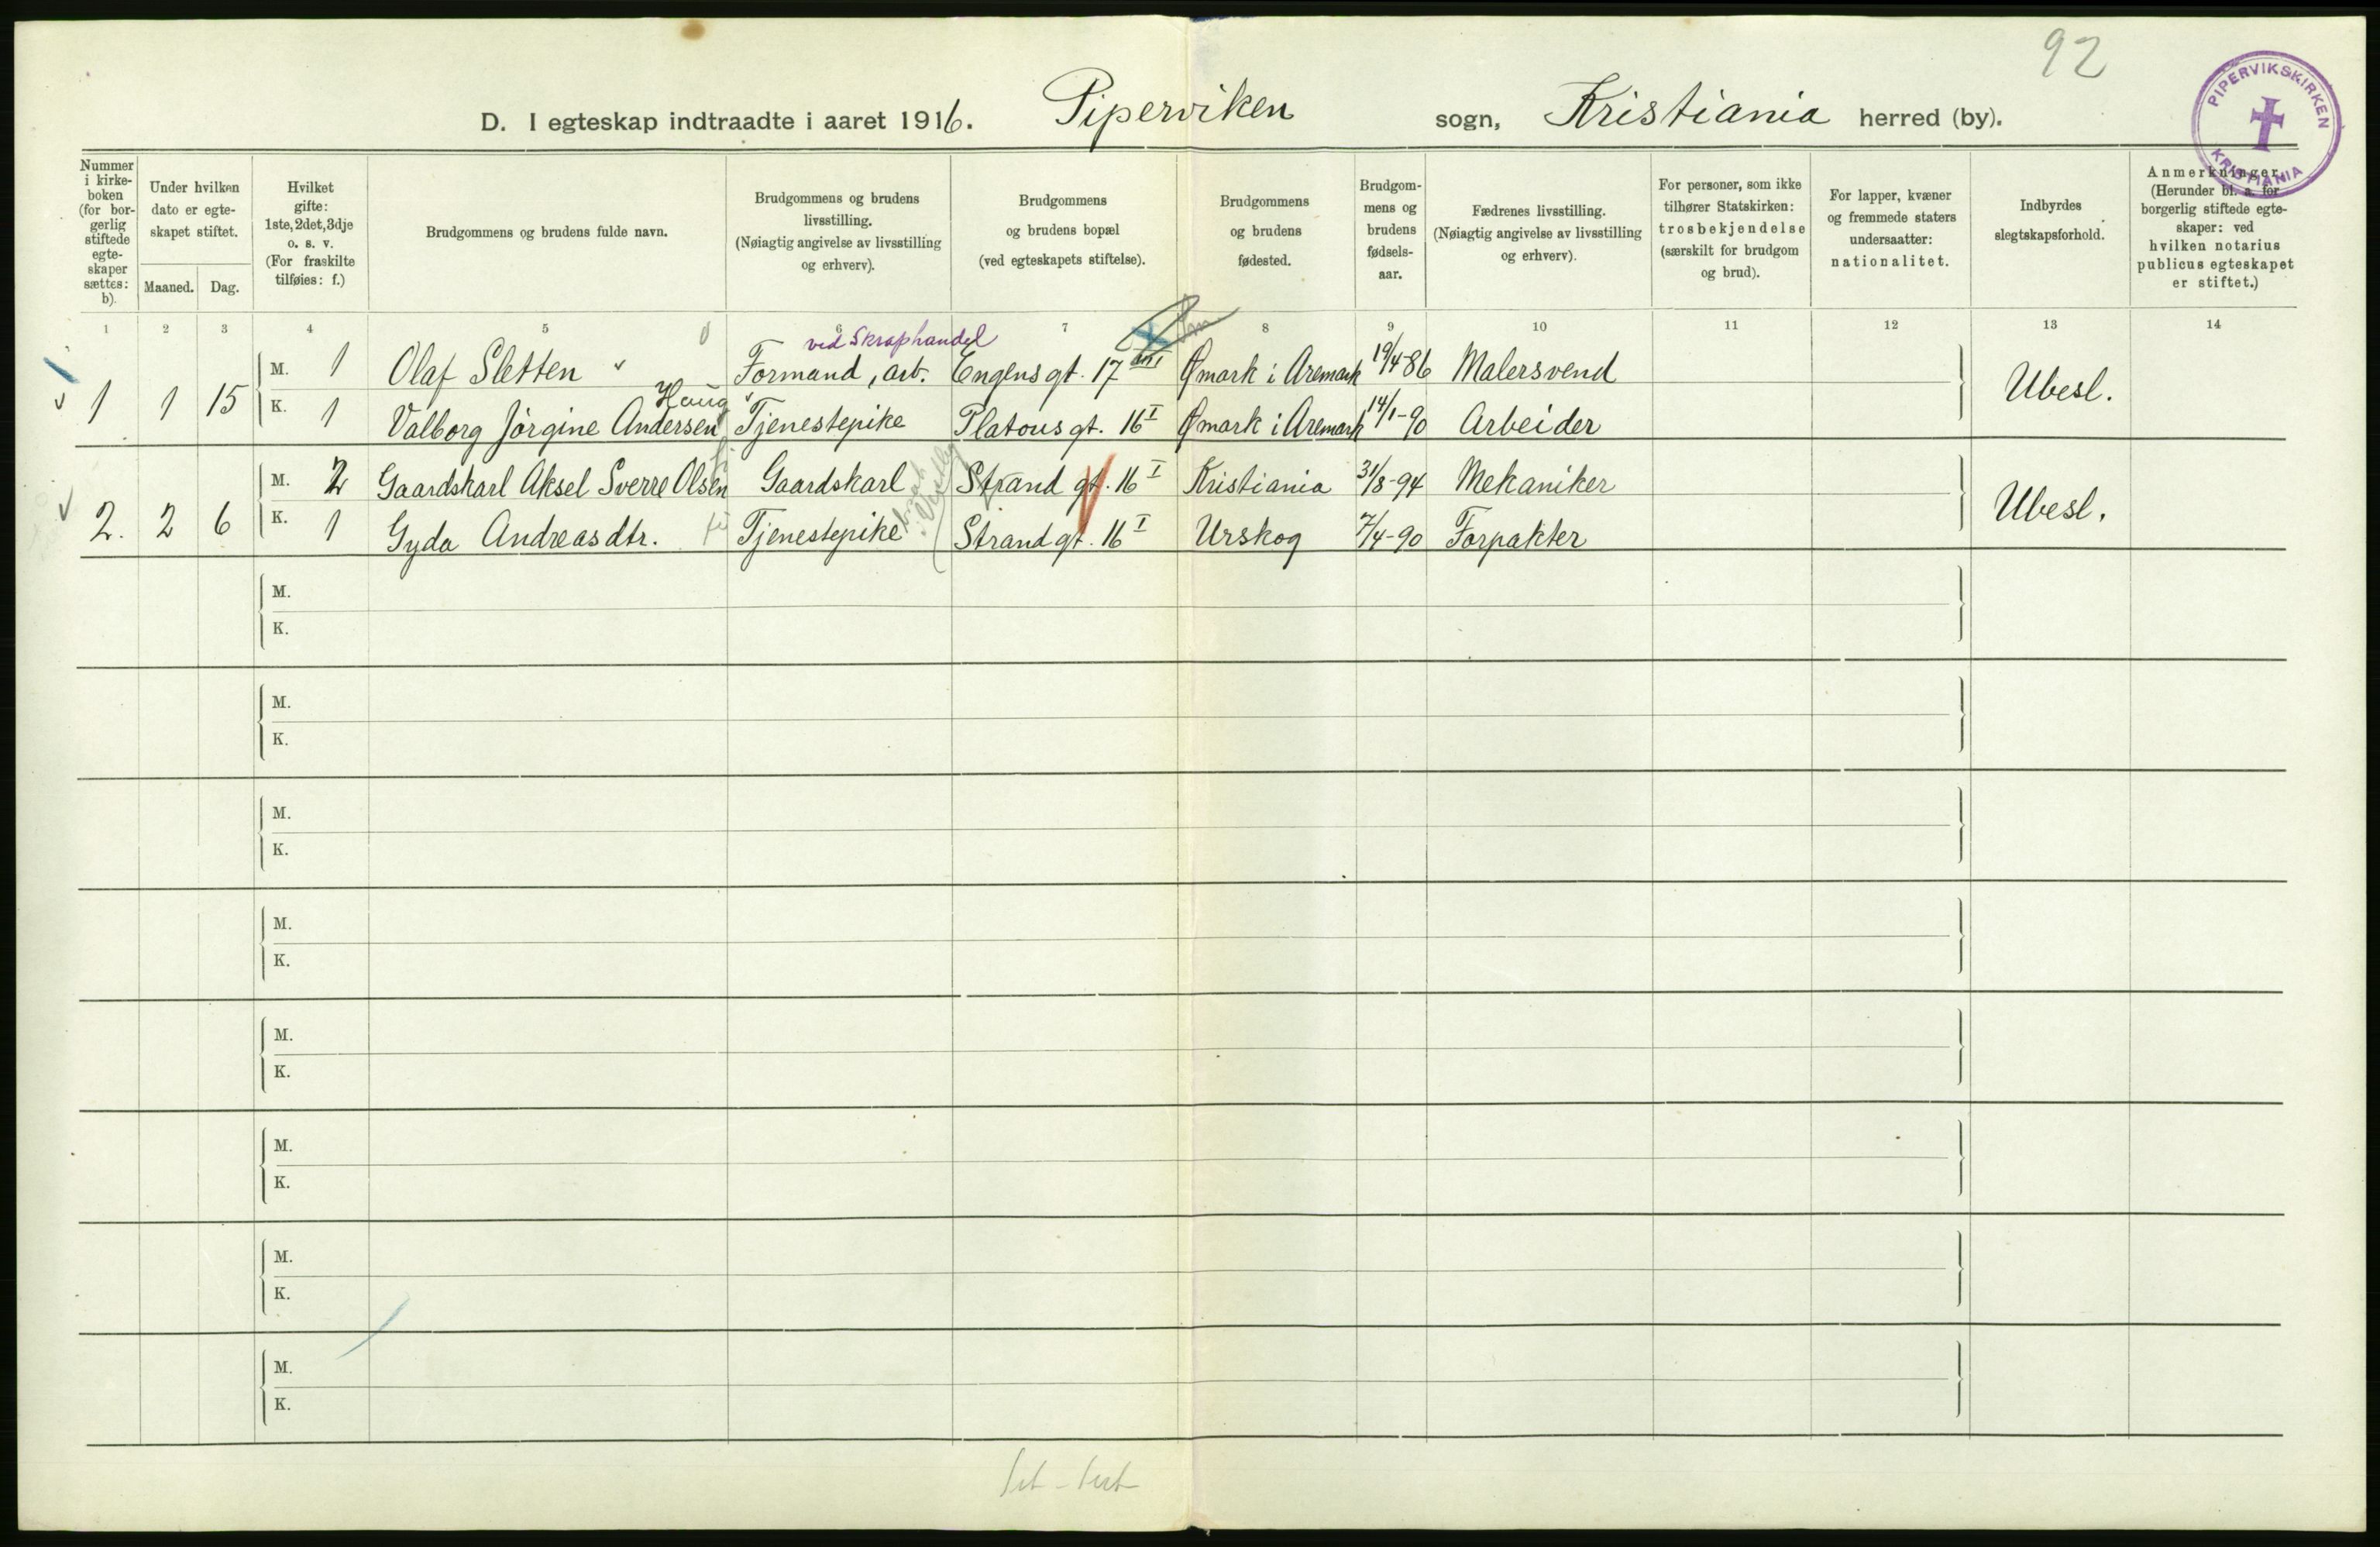 92
PIPERVIKSKIRKEN
KRISTIANIA
D. I egteskap indtraadte i aaret 1916. Piperviken sogn, Kristiania herred (by).
Nummer i kirke-boken (for bor-gerlig stiftede egte-skaper sættes: b).
Under hvilken dato er egte-skapet stiftet.
Maaned. Dag.
Hvilket gifte: 1ste, 2det, 3dje o. s. v. (For fraskilte tilføies: f.)
Brudgommens og brudens fulde navn.
Brudgommens og brudens livsstilling. (Nøiagtig angivelse av livsstilling og erhverv).
Brudgommens og brudens bopæl (ved egteskapets stiftelse).
Brudgommens og brudens fødested.
Brudgom-mens og brudens fødsels-aar.
Fædrenes livsstilling. (Nøiagtig angivelse av livsstilling og erhverv).
For personer, som ikke tilhører Statskirken: trosbekjendelse (særskilt for brudgom og brud).
For lapper, kvæner og fremmede staters undersaatter: nationalitet.
Indbyrdes slegtskapsforhold.
Anmerkninger. (Herunder bl. a. for borgerlig stiftede egte-skaper: ved hvilken notarius publicus egteskapet er stiftet.)
1 2 3 4 5 6 7 8 9 10 11 12 13 14
ved Skraphandel
M. 1 Olaf Sletten Formand, arb. Engens gt. 17 Ømark i Aremark 19/4-86 Malersvend
1 1 15 Ubesl.
Haug
K. 1 Valborg Jørgine Andersen Tjenestepike Platous gt. 16 I Ømark i Aremark 14/1-90 Arbeider
M. 2 Gaardskarl Aksel Sverre Olsen Gaardskarl Strand gt. 16 I Kristiania 31/8-94 Mekaniker
2. 2 6 Ubesl.
K. 1 Gyda Andreasdtr. Tjenestepike Strand gt. 16 I Urskog 7/4-90 Forpakter
M.
K.
M.
K.
M.
K.
M.
K.
M.
K.
M.
K.
M.
K.
M.
K.